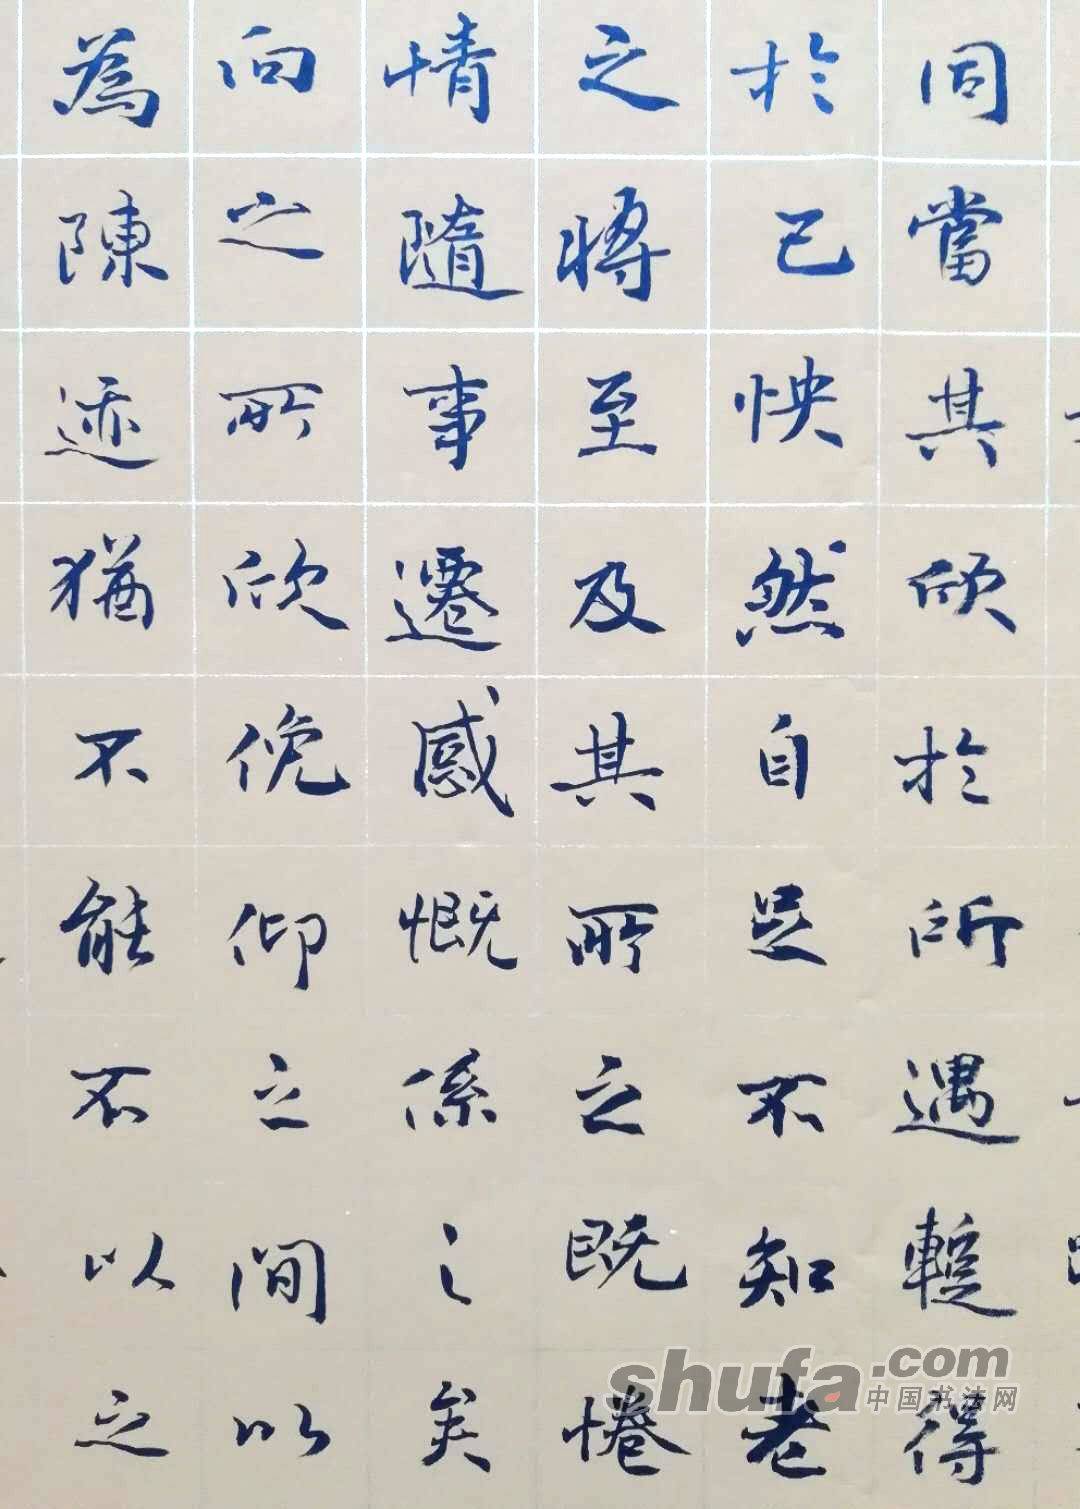 同當其欣於所遇蹔得
於己怏然自足不知老
之將至及其所之既惓
情隨事遷感慨係之矣
向之所欣俛仰之間以
為陳迹猶不能不以之
shufa.com
中国书法网